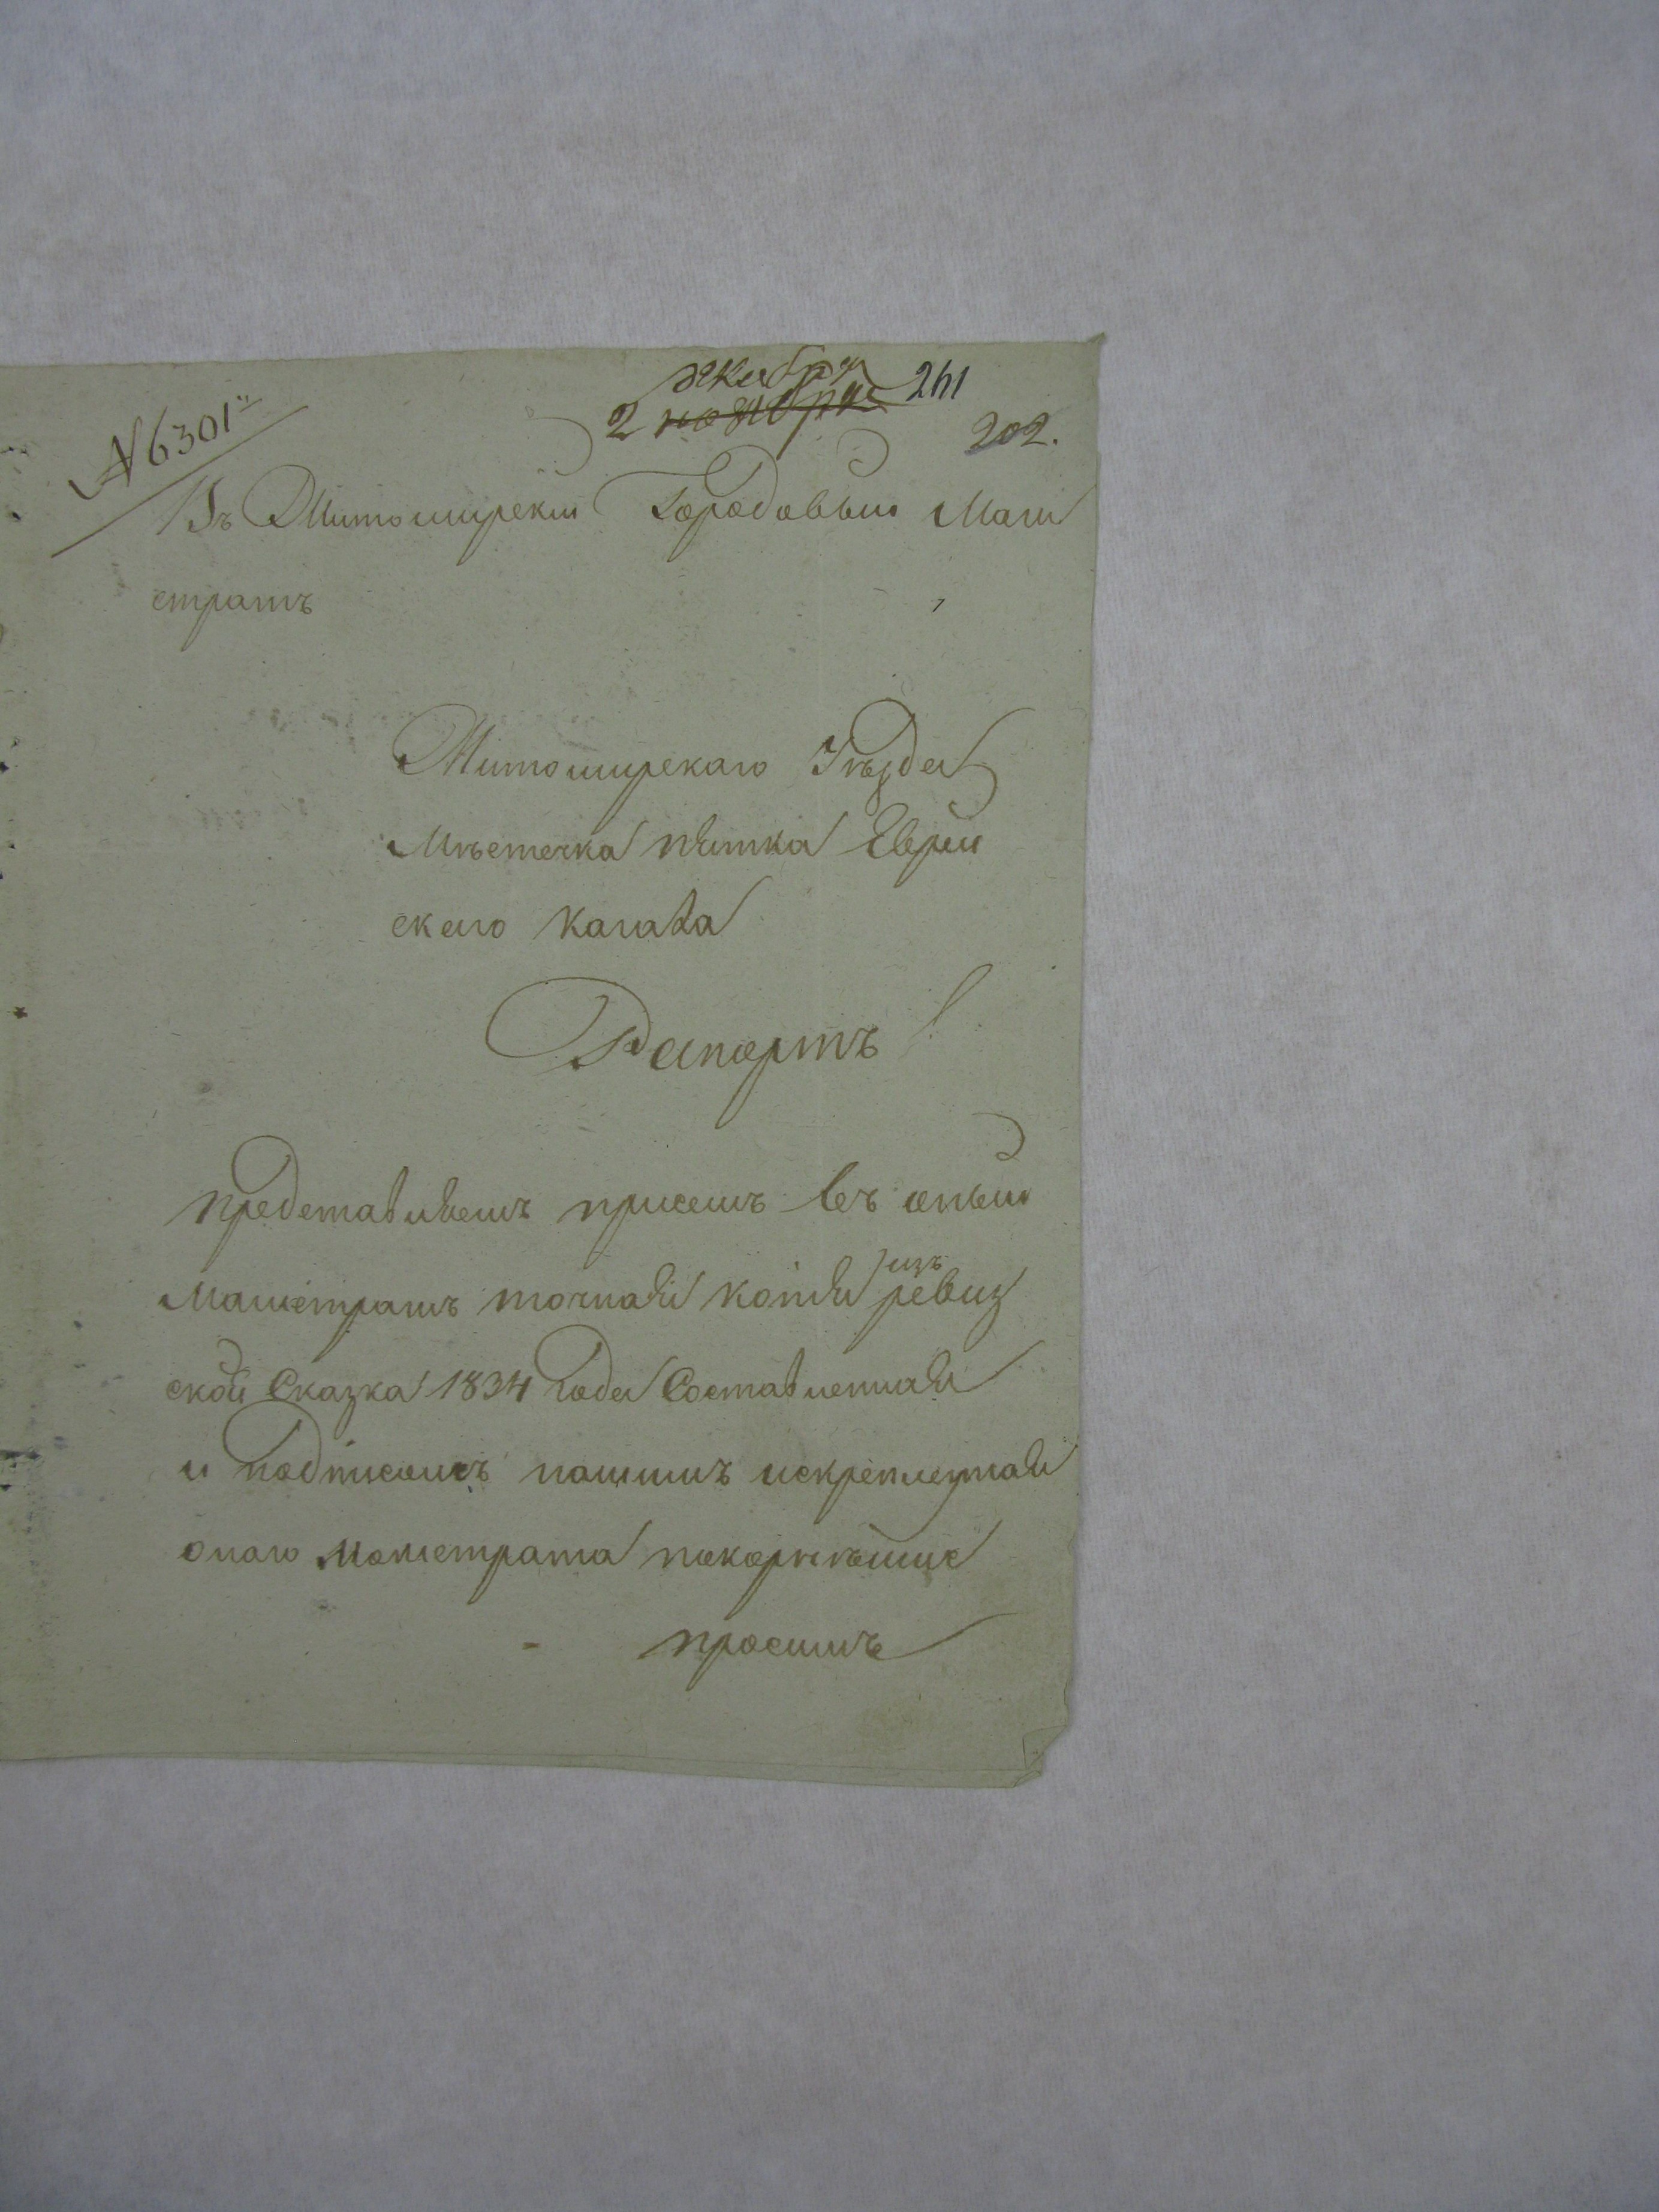 декабря
2 ноября 241
№ 6301й 202.
Въ Житомирскій Городовый Маги
стратъ
Житомирскаго Уѣзда
Мѣстечка пятка Еврей
скаго кагала
Рапортъ
представляемъ присемъ въ оный
Магистратъ точная копія изъ ревиз
ской Сказка 1834 года Составленная
и подписомъ нашимъ искрепленная
онаго магистрата покорнѣйше
просимъ